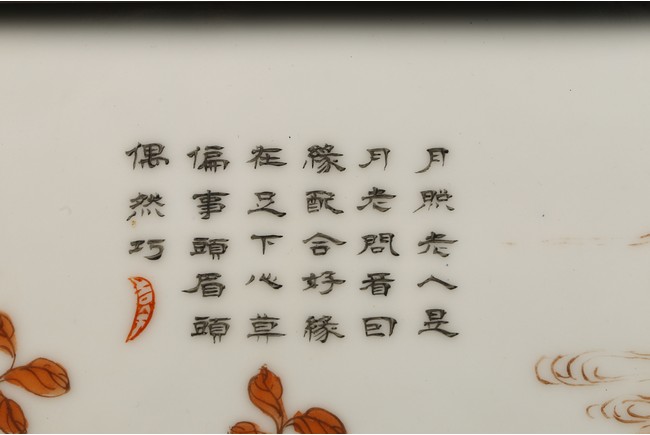 月照老人是
月老問看因
緣配合好緣
在足下心草
偏事頭眉頭
偶然巧